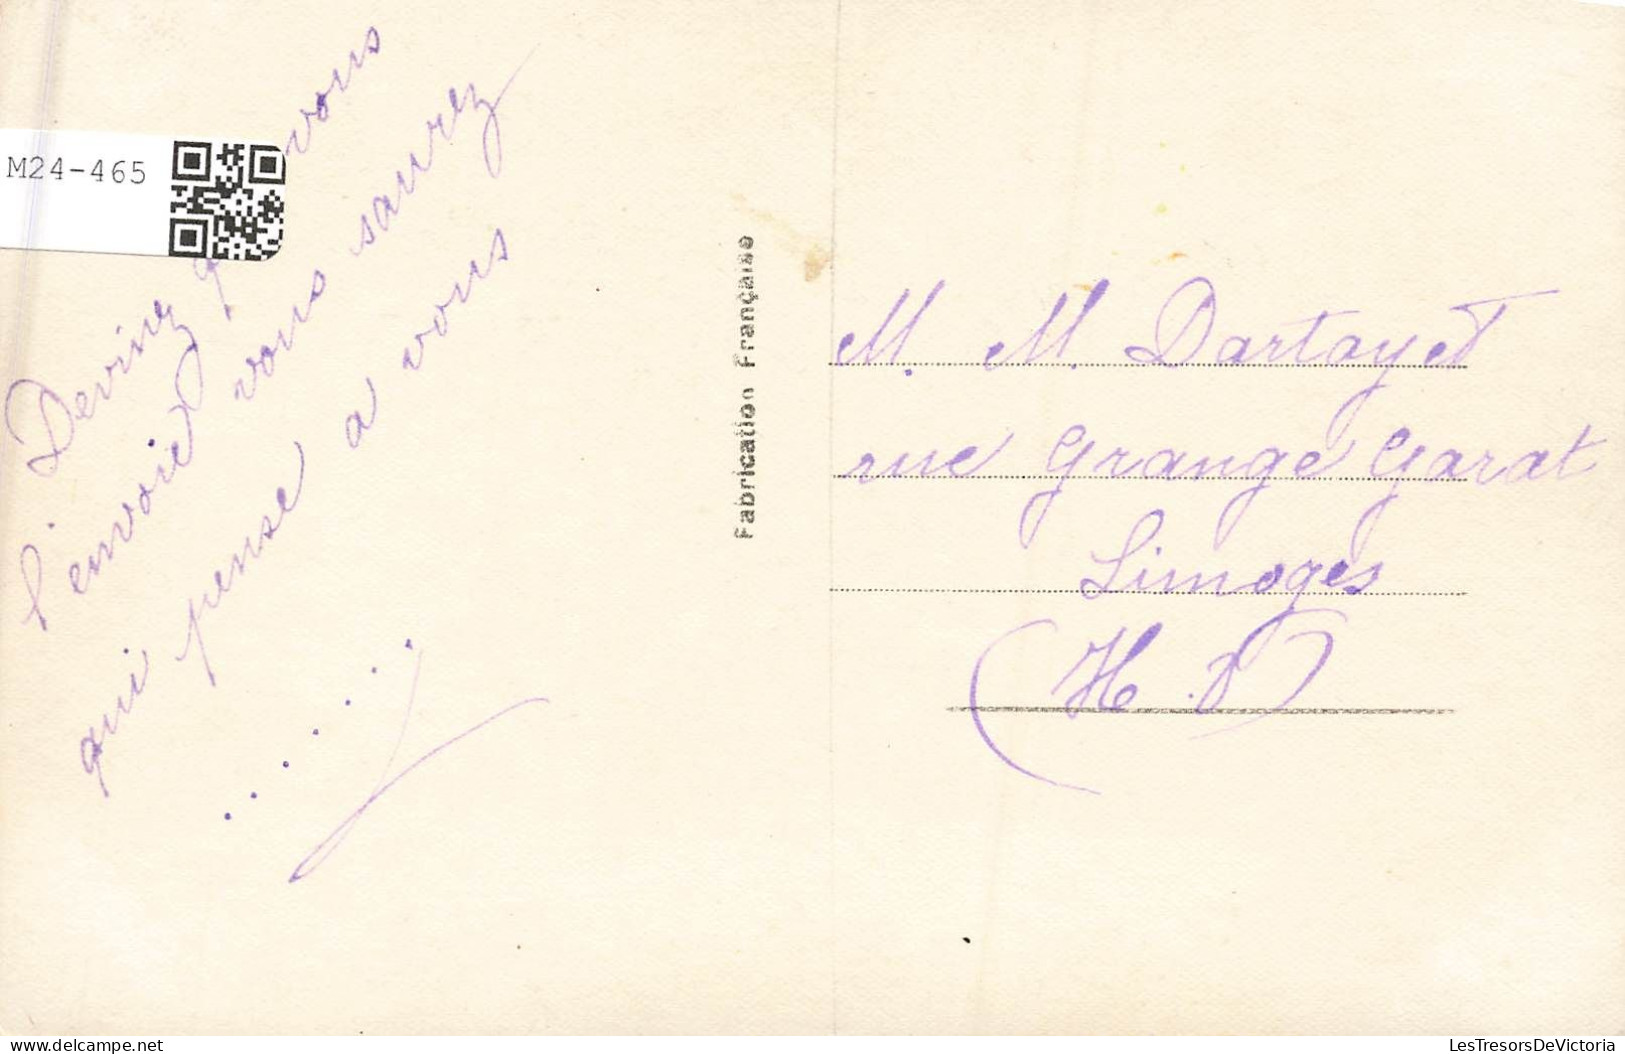 M24-465
Devinez vous
l'envoie vous saurez
qui pense a vous
......
Fabrication Française
M. M. Dartayet
rue Grange Garat
Limoges
(H. V)
delcampe.net
LesTresorsDeVictoria